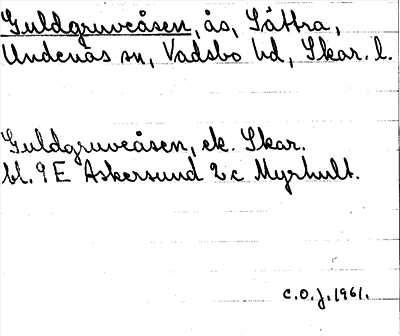 Guldgruveåsen, ås, Sättra,
Undenäs sn, Vadsbo hd, Skar. l.
Guldgruveåsen, ek. Skar.
bl. 9 E Askersund 2c Myrhult.
C.O.J. 1961.